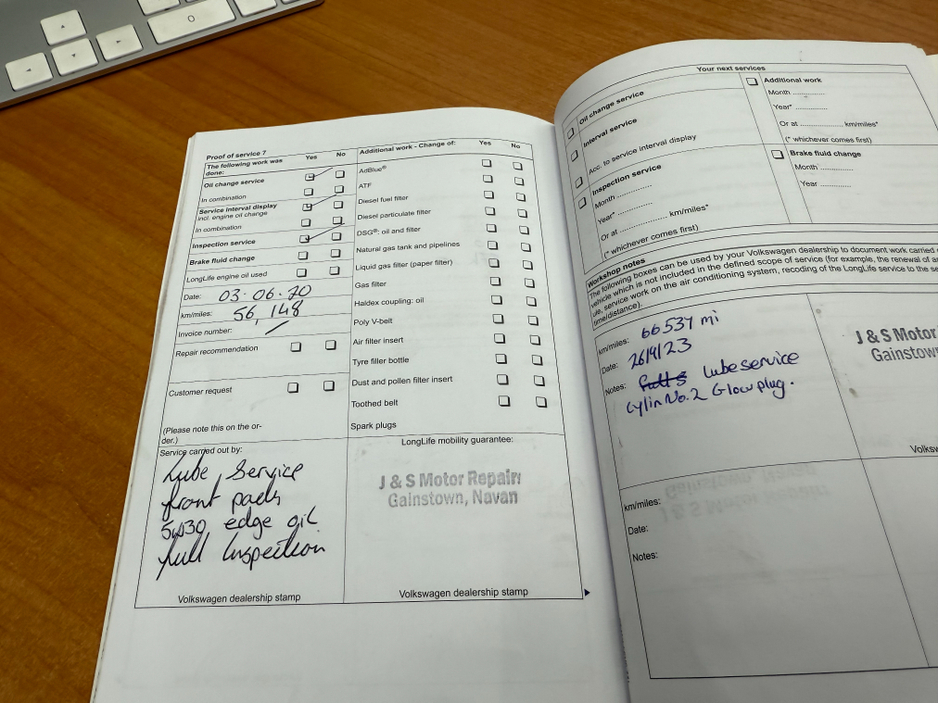 Proof of service 7
The following work was done:
Yes
No
Oil change service
In combination
Service interval display
incl. engine oil change
In combination
Inspection service
Brake fluid change
LongLife engine oil used
Date: 03·06·20
km/miles: 56,148
Invoice number: /
Repair recommendation
Customer request
(Please note this on the or-
der.)
Additional work - Change of:
Yes
No
AdBlue®
ATF
Diesel fuel filter
Diesel particulate filter
DSG®: oil and filter
Natural gas tank and pipelines
Liquid gas filter (paper filter)
Gas filter
Haldex coupling: oil
Poly V-belt
Air filter insert
Tyre filler bottle
Dust and pollen filter insert
Toothed belt
Spark plugs
Service carried out by:
Lube Service
front pads
5w30 edge oil
full Inspection
Volkswagen dealership stamp
LongLife mobility guarantee:
J & S Motor Repair
Gainstown, Navan
Volkswagen dealership stamp
Your next services
Oil change service
Interval service
Acc. to service interval display
Inspection service
Month ..............
Year* ..............
Or at .............. km/miles*
(* whichever comes first)
Additional work
Month ..............
Year* ..............
Or at .............. km/miles*
(* whichever comes first)
Brake fluid change
Month ..............
Year ..............
Workshop notes
The following boxes can be used by your Volkswagen dealership to document work carried
vehicle which is not included in the defined scope of service (for example, the renewal of
service work on the air conditioning system, recoding of the LongLife service to the
time/distance).
km/miles: 66537 mi
Date: 26/9/23
Notes: lube service
Cylin No. 2 Glow plug.
J & S Motor
Gainstow
Volks
km/miles:
Date:
Notes: